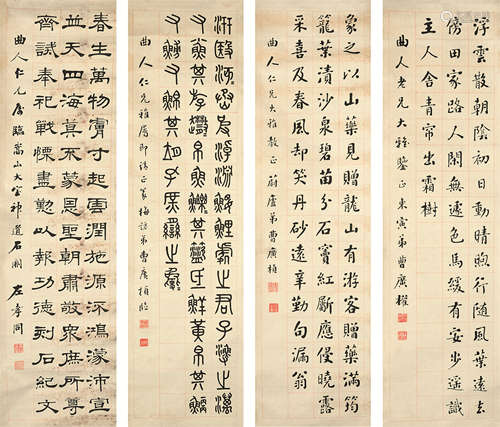 浮雲散秋陰初動晴煦行隨風葉遠去
傍田家路人閒無遽色馬緩有安步遙識
主人舍青帘出霜樹
曲人老兄大雅鑒正東寅弟曹廣權
象之以山藥見贈龍山有游客贈藥滿筠
籠葉漬沙泉碧苗分石竇紅斸應侵曉露
采喜及春風却笑丹砂遠辛勤句漏翁
曲人仁兄大雅教正蔚廬弟曹廣楨
淖淵鰋鯉處之君子漁之
又其氐鮮黃帛其
又又其之
曲人仁兄雅屬即請正篆梅訪弟曹廣楨臨
春生萬物膚寸起雲潤施源流鴻濛沛宣
并天四海莫不蒙恩聖朝肅敬衆庶所尊
齊誠奉祀戰慄盡懃以功德刻石紀文
曲人仁兄屬臨嵩山大室神道石闕 左孝同